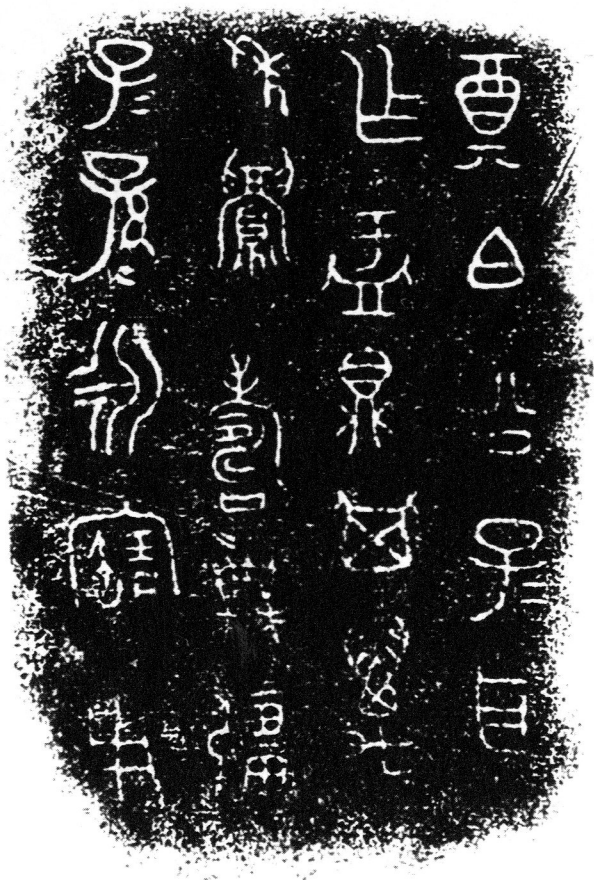 奠白公子=耳
乍盂鼎其萬
年眉壽無彊
子=孫=永寶用